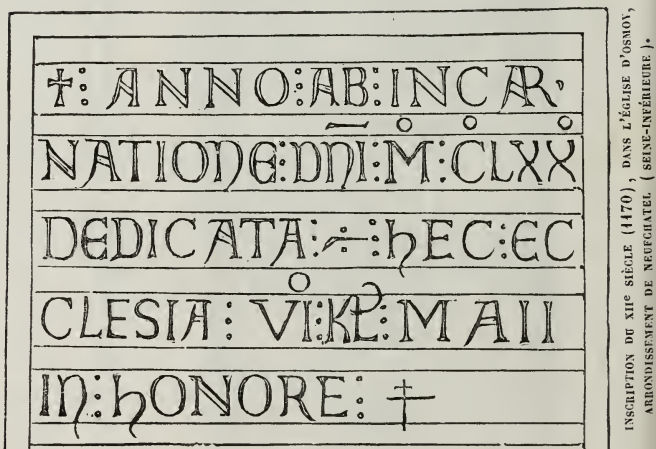 ✝⁝ ANNO⁝AB⁝INCAR
NATIONE⁝DNI⁝M⁝CLXX
DEDICATA⁝÷⁝HEC⁝EC
CLESIA⁝ VI⁝KL⁝MAII
IN⁝HONORE⁝ ‡
INSCRIPTION DU XIIe SIÈCLE (1170), DANS L'ÉGLISE D'OSMOY,
ARRONDISSEMENT DE NEUFCHATEL (SEINE-INFÉRIEURE).